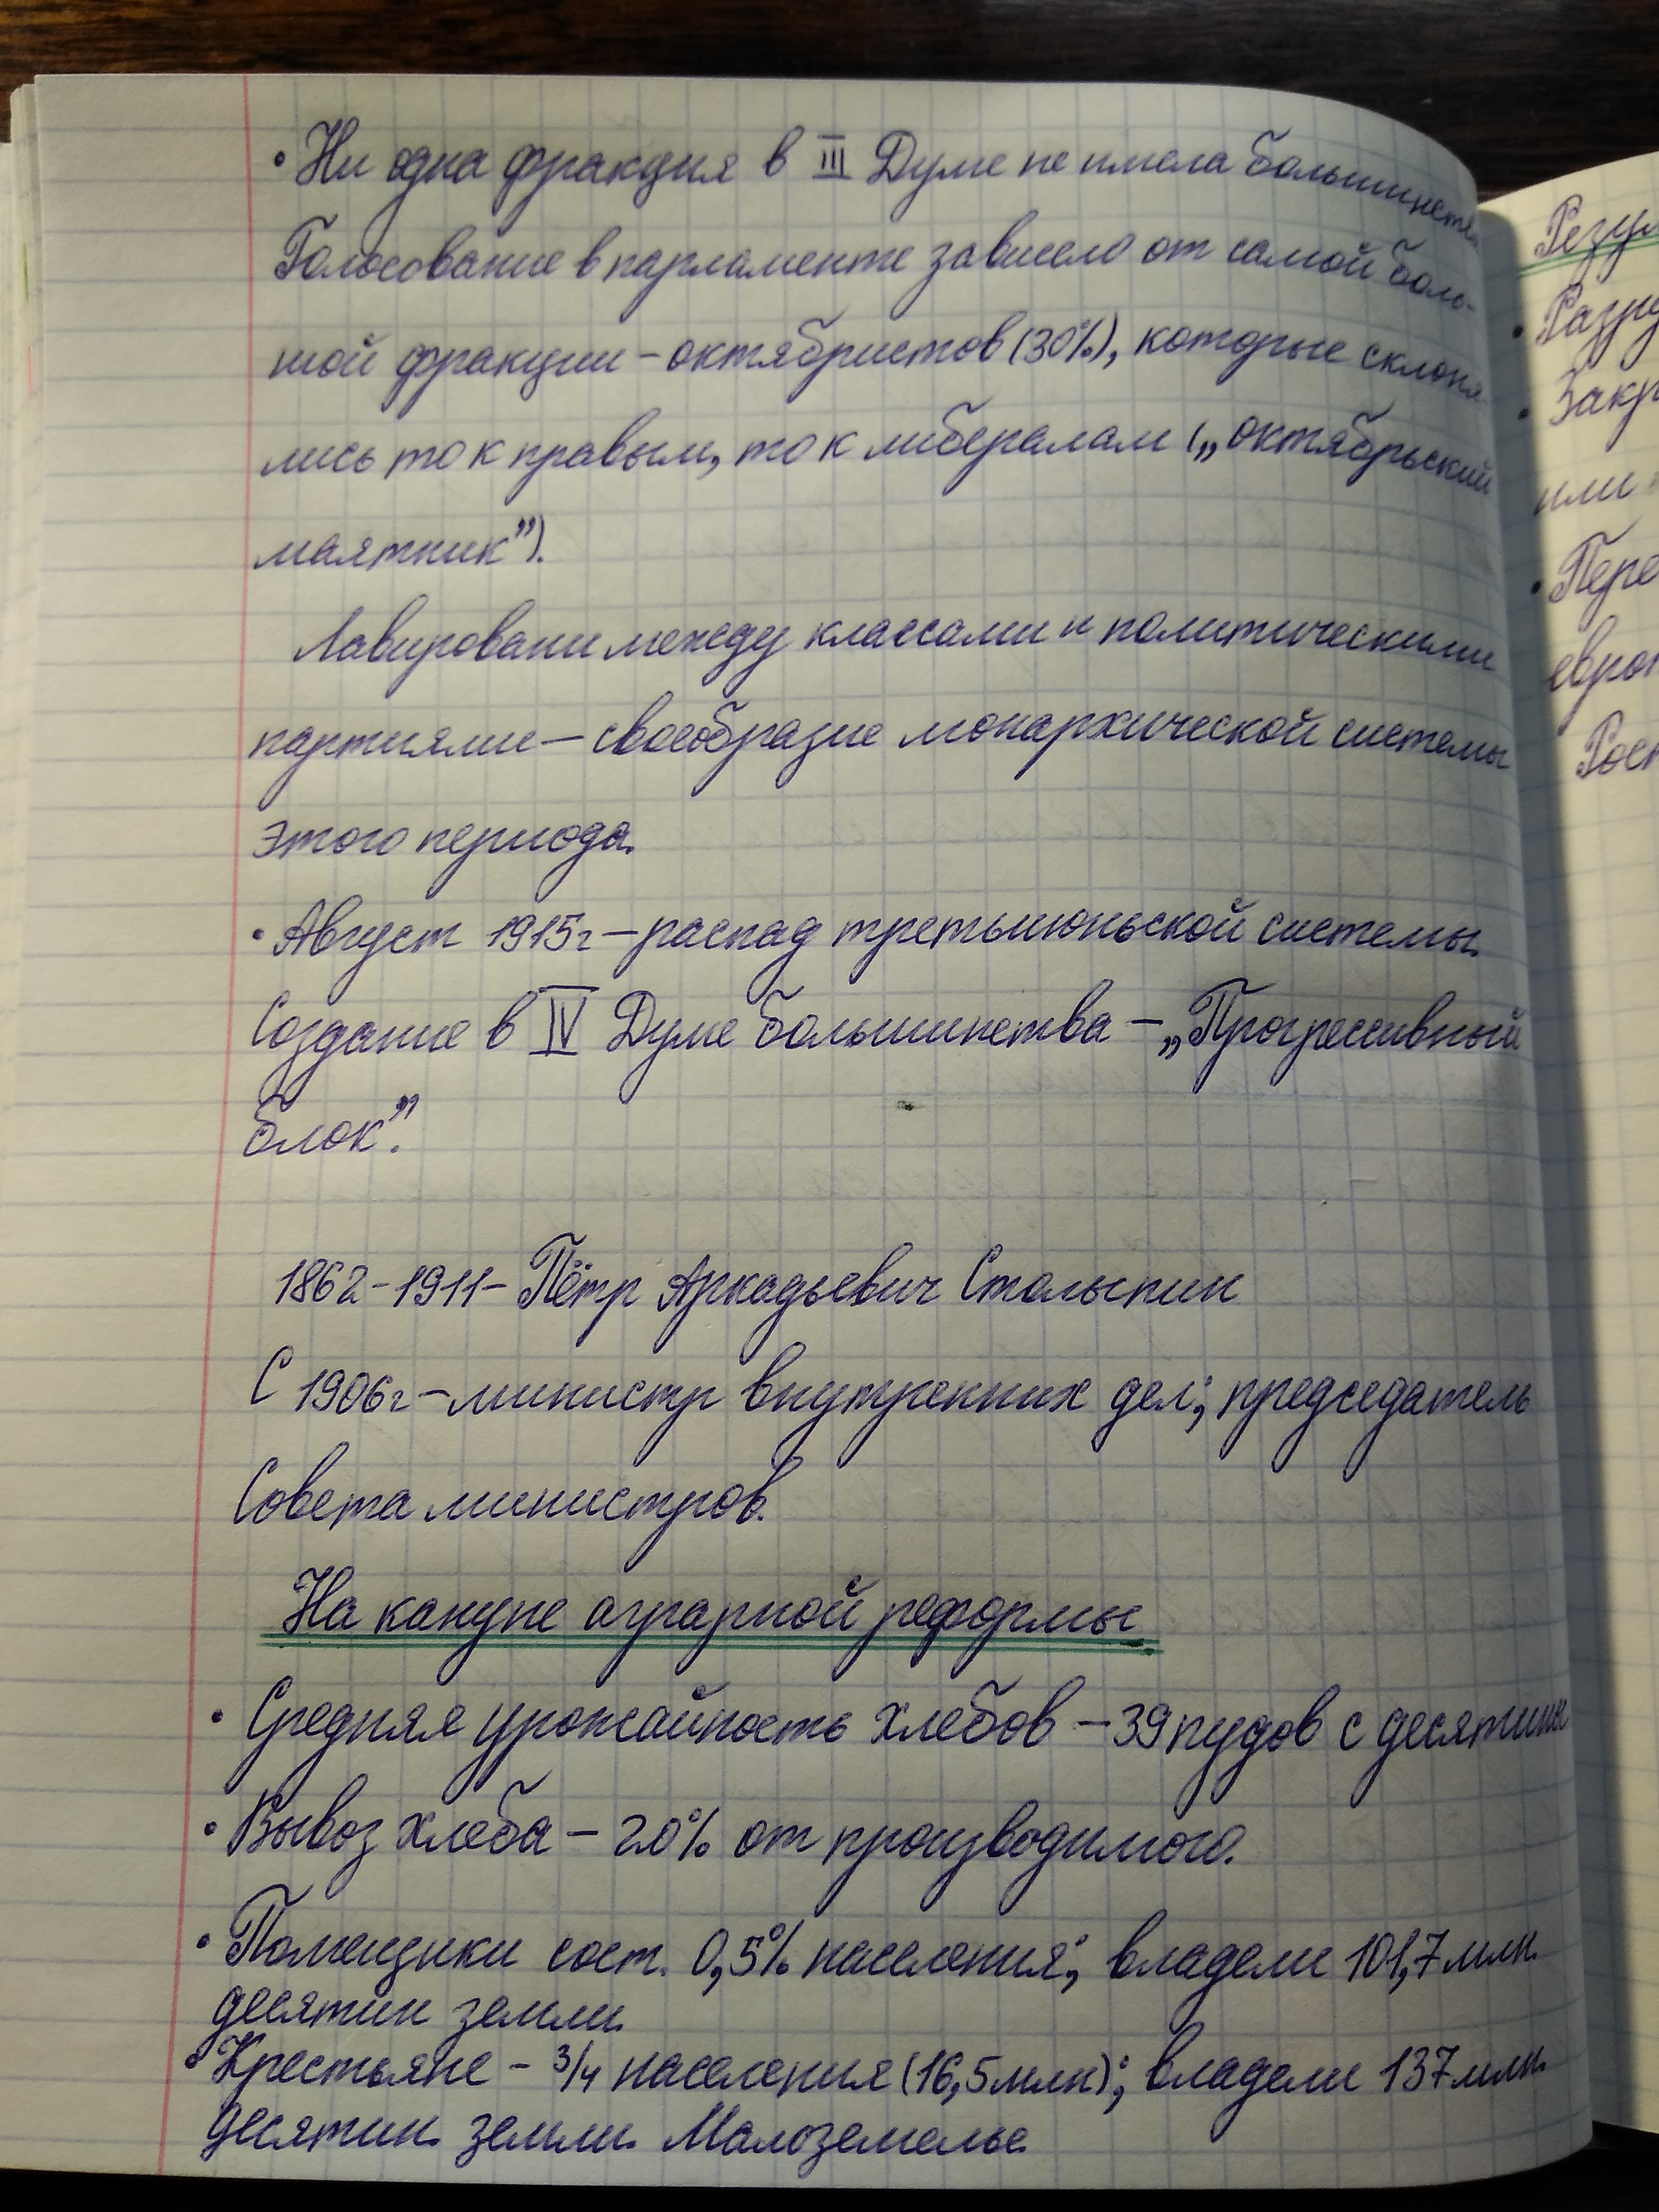 • Ни одна фракция в III Думе не имела большинства
Голосование в парламенте зависело от самой боль-
шой фракции – октябристов (30%), которые склоня
лись то к правым, то к либералам („октябрьский
маятник").
Лавировани между классами и политическими
партиями – своеобразие монархической системы
этого периода.
• Август 1915г – распад третьиюньской системы.
Создание в IV Думе большинства – „Прогрессивный
блок".
1862-1911- Пётр Аркадьевич Столыпин
С 1906г – министр внутренних дел; председатель
Совета министров.
На кануне аграрной реформы
• Средняя урожайность хлебов – 39 пудов с десятины
• Вывоз хлеба – 20% от производимого.
• Помещики сост. 0,5% населения; владели 101,7 млн.
десятин земли.
• Крестьяне – 3/4 населения (16,5 млн); владели 137 млн.
десятин. земли. Малоземелье.
Резул
• Разру
• Закр
или
• Пере
европ
Рост